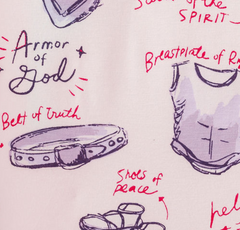 of the
SPIRIT
Armor
of
God
Breastplate of
Belt of Truth
Shoes of
peace